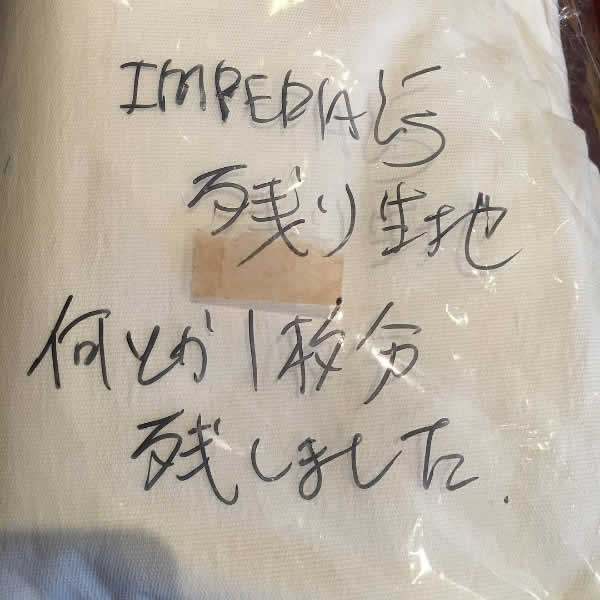 IMPERIAL's
残り生地
何とか1枚分
残しました.